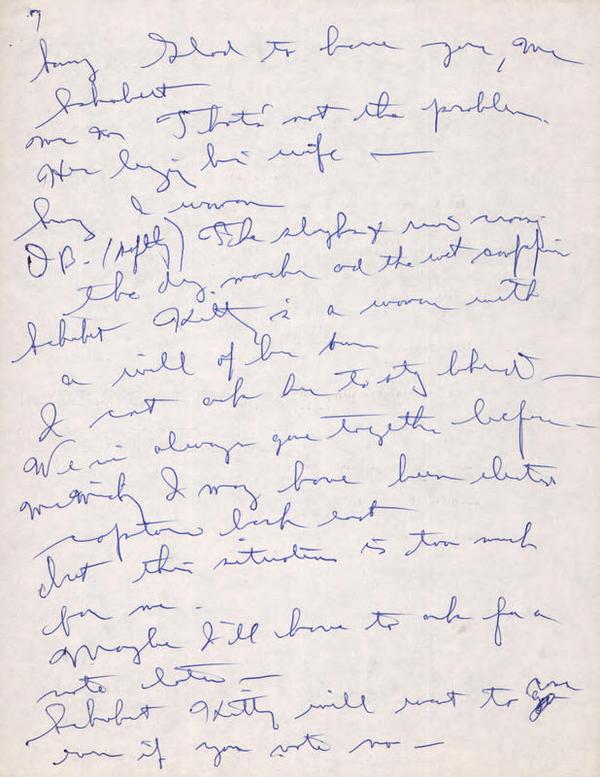 7
Glad to have you, Mr
Schubert
That's not the problem.
He's bringing his wife —
A woman
OB. (softly) The
the dry. and the wet
Schubert Kitty is a woman with
a will of her own
I can't ask her to stay behind —
We've always gone together before —
I may have been elected
captain back east
but this situation is too much
for me.
Maybe I'll have to ask for a
vote later —
Schubert Kitty will want to come
even if you vote no —